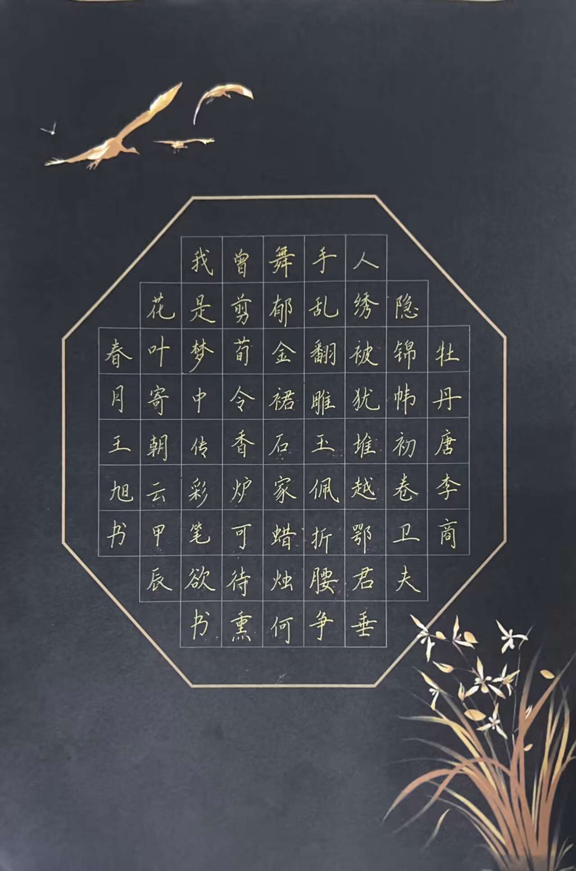 牡丹唐李商
隐锦帏初卷卫夫
人绣被犹堆越鄂君垂
手乱翻雕玉佩折腰争
舞郁金裙石家蜡烛何
曾剪荀令香炉可待熏
我是梦中传彩笔欲书
花叶寄朝云甲辰
春月王旭书